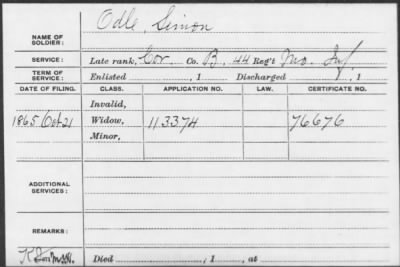 NAME OF SOLDIER: Odle, Simon
SERVICE: Late rank, Cor. Co. B, 44 Reg't Mo. Inf.
TERM OF SERVICE: Enlisted , 1 Discharged , 1
DATE OF FILING. CLASS. APPLICATION NO. LAW. CERTIFICATE NO.
Invalid,
1865 Oct 21 Widow, 113374 76676
Minor,
ADDITIONAL SERVICES:
REMARKS:
Died , 1 , at